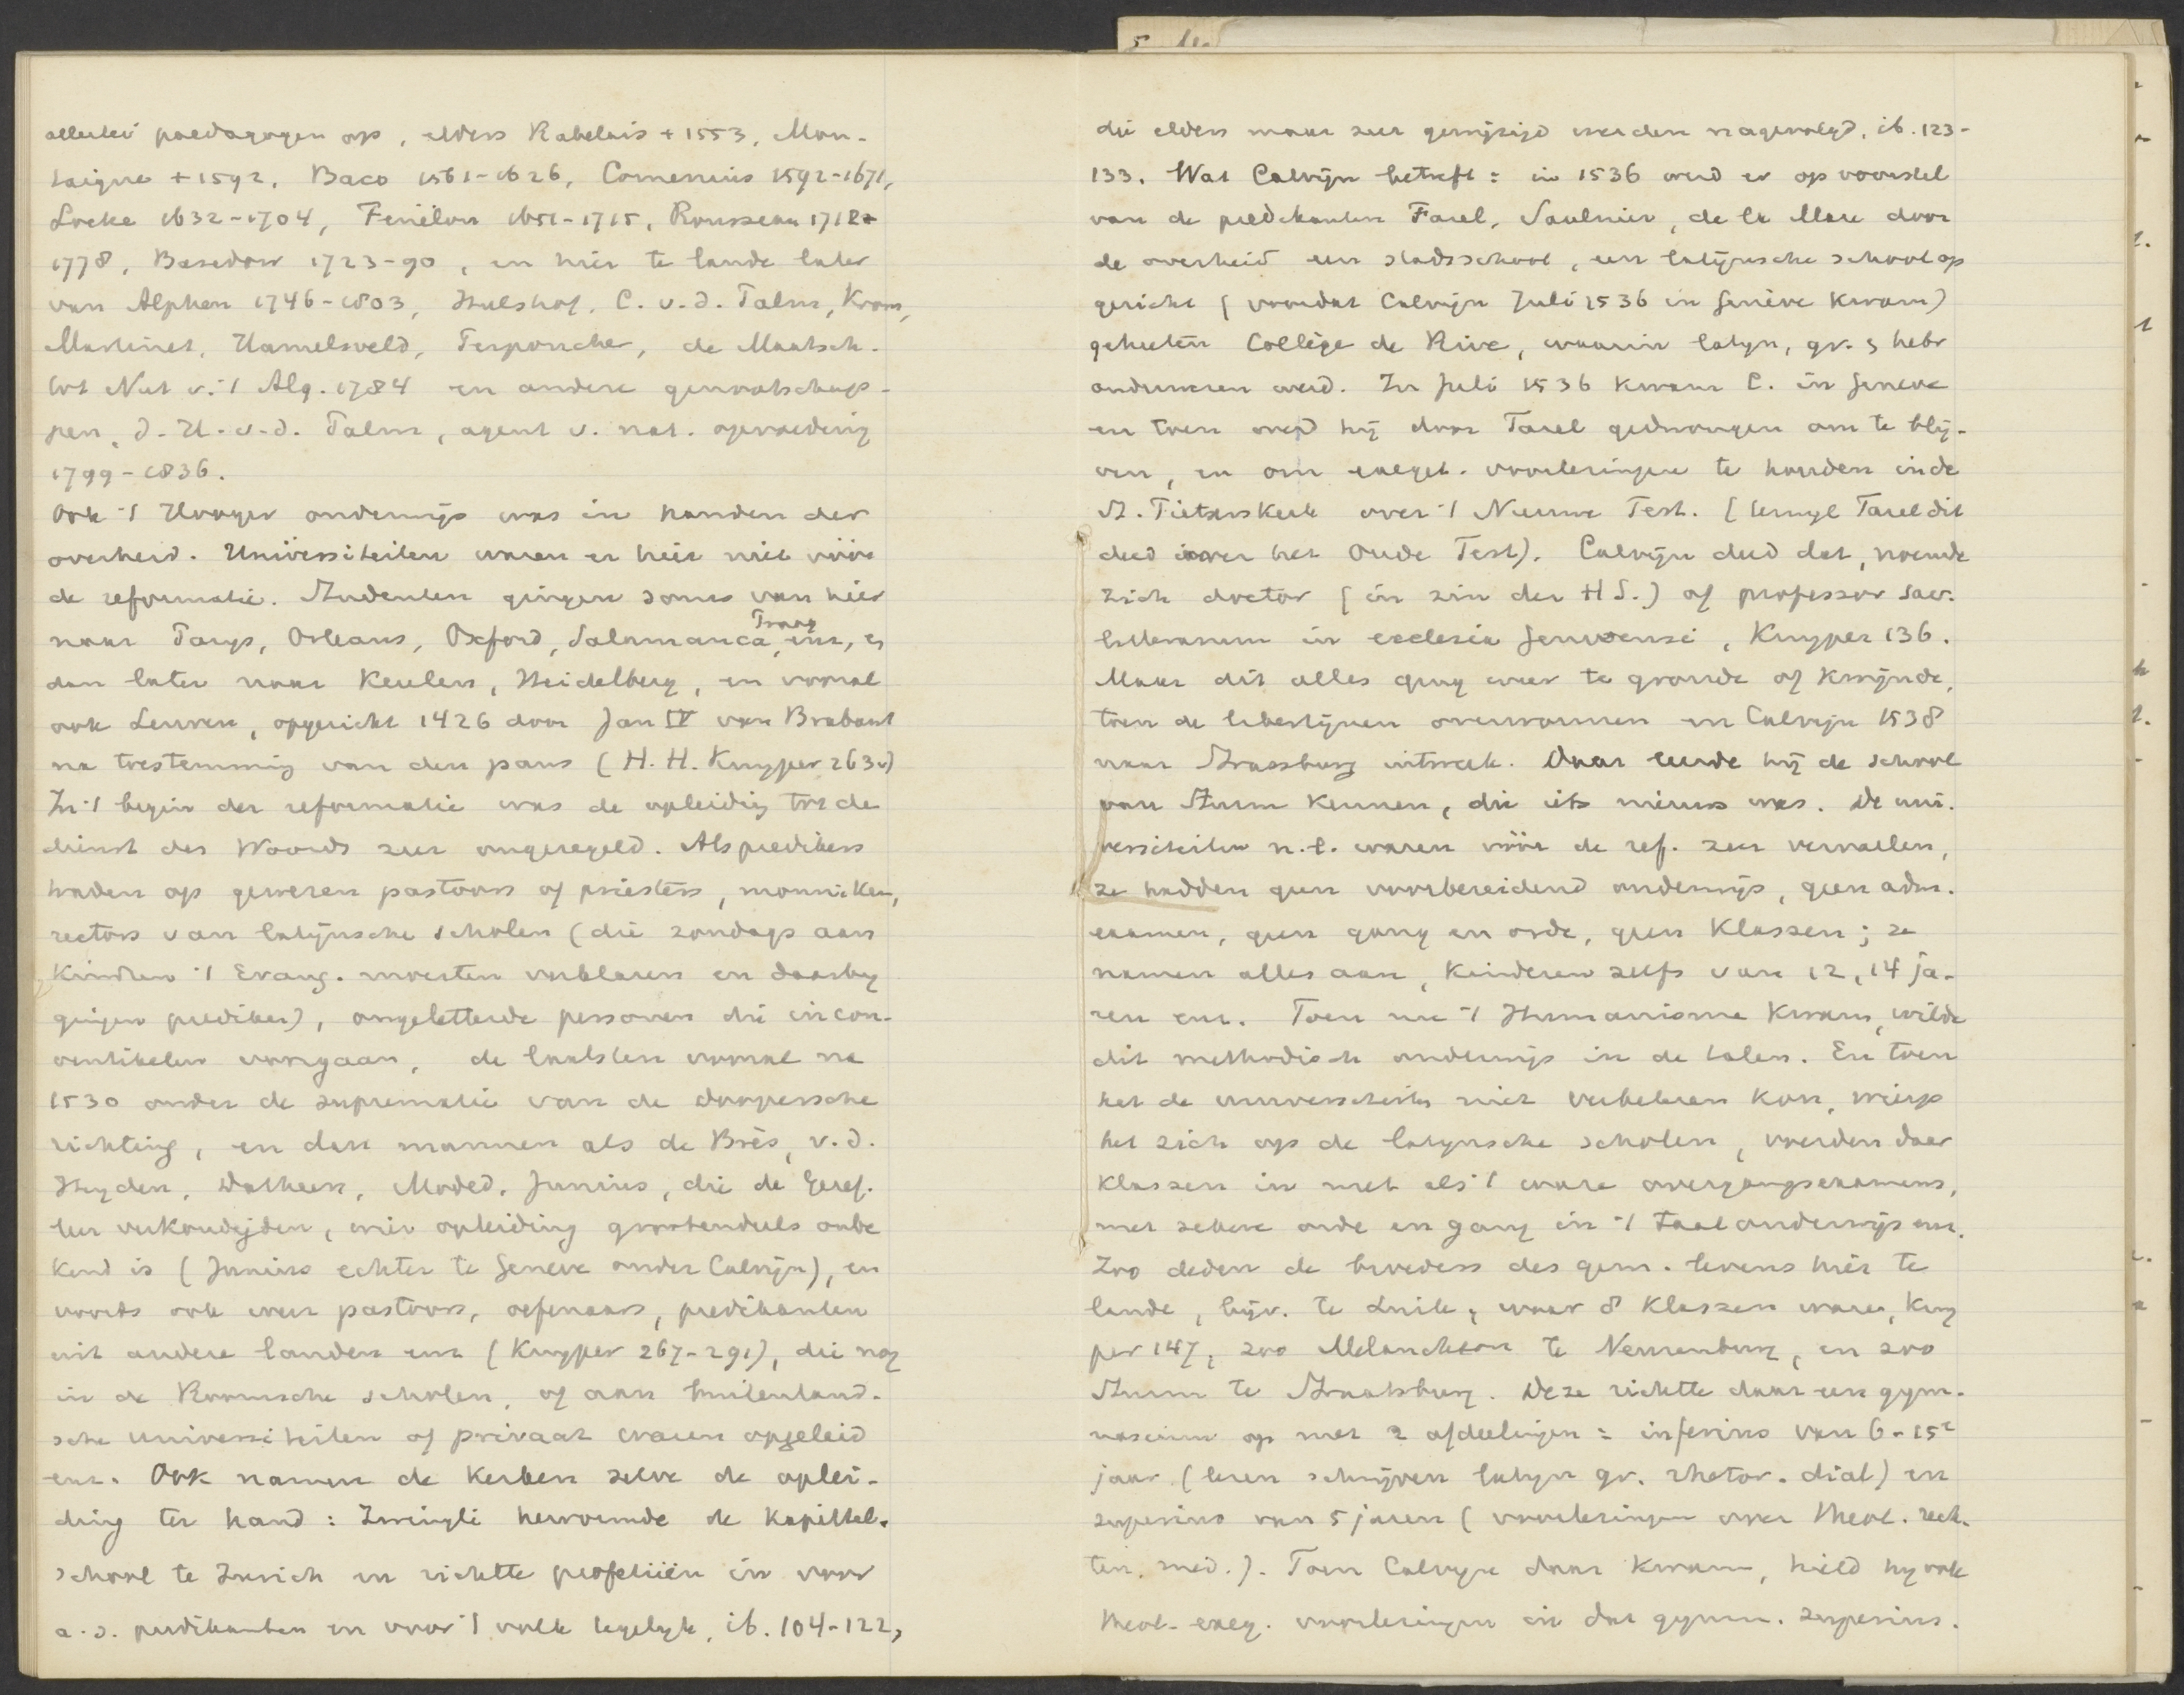 allerlei paedagogen op, elders Rabelais + 1553, Mon-
taigne + 1592, Baco 1561-1626, Comenius 1592-1671,
Locke 1632-1704, Fenélon 1651-1715, Rousseau 1712-
1778, Basedow 1723-90, en hier te lande later
van Alphen 1746-1803, Hulshof, C. v.d. Palm, Krom,
Martinet, Hamelsveld, Perponcher, de Maatsch.
tot Nut v. 't Alg. 1784 en andere genootschap-
pen, J. H. v. d. Palm, agent v. nat. opvoeding
1799-1836.
Ook 't Hooger onderwijs was in handen der
overheid. Universiteiten waren er hier niet vóór
de reformatie. Studenten gingen soms van hier
naar Parijs, Orleans, Oxford, Salamanca, Praag enz, en
dan later naar Keulen, Heidelberg, en vooral
ook Leuven, opgericht 1426 door Jan IV van Brabant
na toestemming van den paus (H. H. Kuyper 263v)
In 't begin der reformatie was de opleiding tot de
dienst des Woords zeer ongeregeld. Als predikers
traden op gewezen pastoors of priesters, monniken,
rectors van latijnsche scholen (die zondags aan
kinderen 't Evang. moesten verklaren en daarbij
gingen prediken), ongeletterde personen die in con-
ventikelen voorgaan, de laatsten vooral na
1530 onder de suprematie van de doopersche
richting, en dan mannen als de Brès, v. d.
Heyden, Datheen, Moded, Junius, die de Geref.
leer verkondigden, wier opleiding grootendeels onbe
kend is (Junius echter te Geneve onder Calvijn), en
voorts ook weer pastoors, oefenaars, predikanten
uit andere landen enz (Kuyper 267-291), die nog
in de Roomsche scholen, of aan buitenland-
sche universiteiten of privaat waren opgeleid
enz. Ook namen de kerken zelve de oplei-
ding ter hand: Zwingli hervormde de kapittel-
school te Zurich en richtte profetiën in voor
a.s. predikanten en voor 't volk tegelijk, ib. 104-122,
die elders maar zeer gewijzigd werden nagevolgd, ib. 123-
133. Wat Calvijn betreft: in 1536 werd er op voorstel
van de predikanten Farel, Saulnier, de la Mare door
de overheid een stadsschool, een latijnsche school op
gericht (voordat Calvijn Juli 1536 in Genève kwam)
geheeten Collège de Rive, waarin latijn, gr. en hebr
onderwezen werd. In Juli 1536 kwam C. in Geneve
en toen werd hij door Farel gedwongen om te blij-
ven, en om exeget. voorlezingen te houden in de
St. Pieterskerk over 't Nieuwe Test. (terwijl Farel dit
deed over het Oude Test). Calvijn deed dat, noemde
zich doctor (in zin der HS.) of professor sacr.
litterarum in ecclesia Genevensi, Kuyper 136.
Maar dit alles ging weer te gronde of kwijnde,
toen de libertijnen overwonnen en Calvijn 1538
naar Straasburg uitweek. Daar leerde hij de school
van Sturm kennen, die iets nieuws was. De uni-
versiteiten n.l. waren vóór de ref. zeer vervallen,
ze hadden geen voorbereidend onderwijs, geen adm.
examen, geen gang en orde, geen klassen; ze
namen alles aan, kinderen zelfs van 12, 14 ja-
ren enz. Toen nu 't Humanisme kwam, wilde
dit methodisch onderwijs in de talen. En toen
het de universiteiten niet verbeteren kon, wierp
het zich op de latijnsche scholen, voerden daar
klassen in met als 't ware overgangsexamens,
met zekere orde en gang in 't taalonderwijs enz.
Zoo deden de broeders des gem. levens hier te
lande, bijv. te Luik, waar 8 klassen waren, Kuy
per 147, zoo Melanchton te Neurenburg, en zoo
Sturm te Straatsburg. Deze richtte daar een gym-
nasium op met 2 afdeelingen: inferius van 6-15e
jaar (lezen schrijven latijn gr. rhetor. dial) en
superius van 5 jaren (voorlezingen over theol. rech-
ten, med.). Toen Calvijn daar kwam, hield hij ook
theol-exeg. voorlezingen in dat gymn. superius.